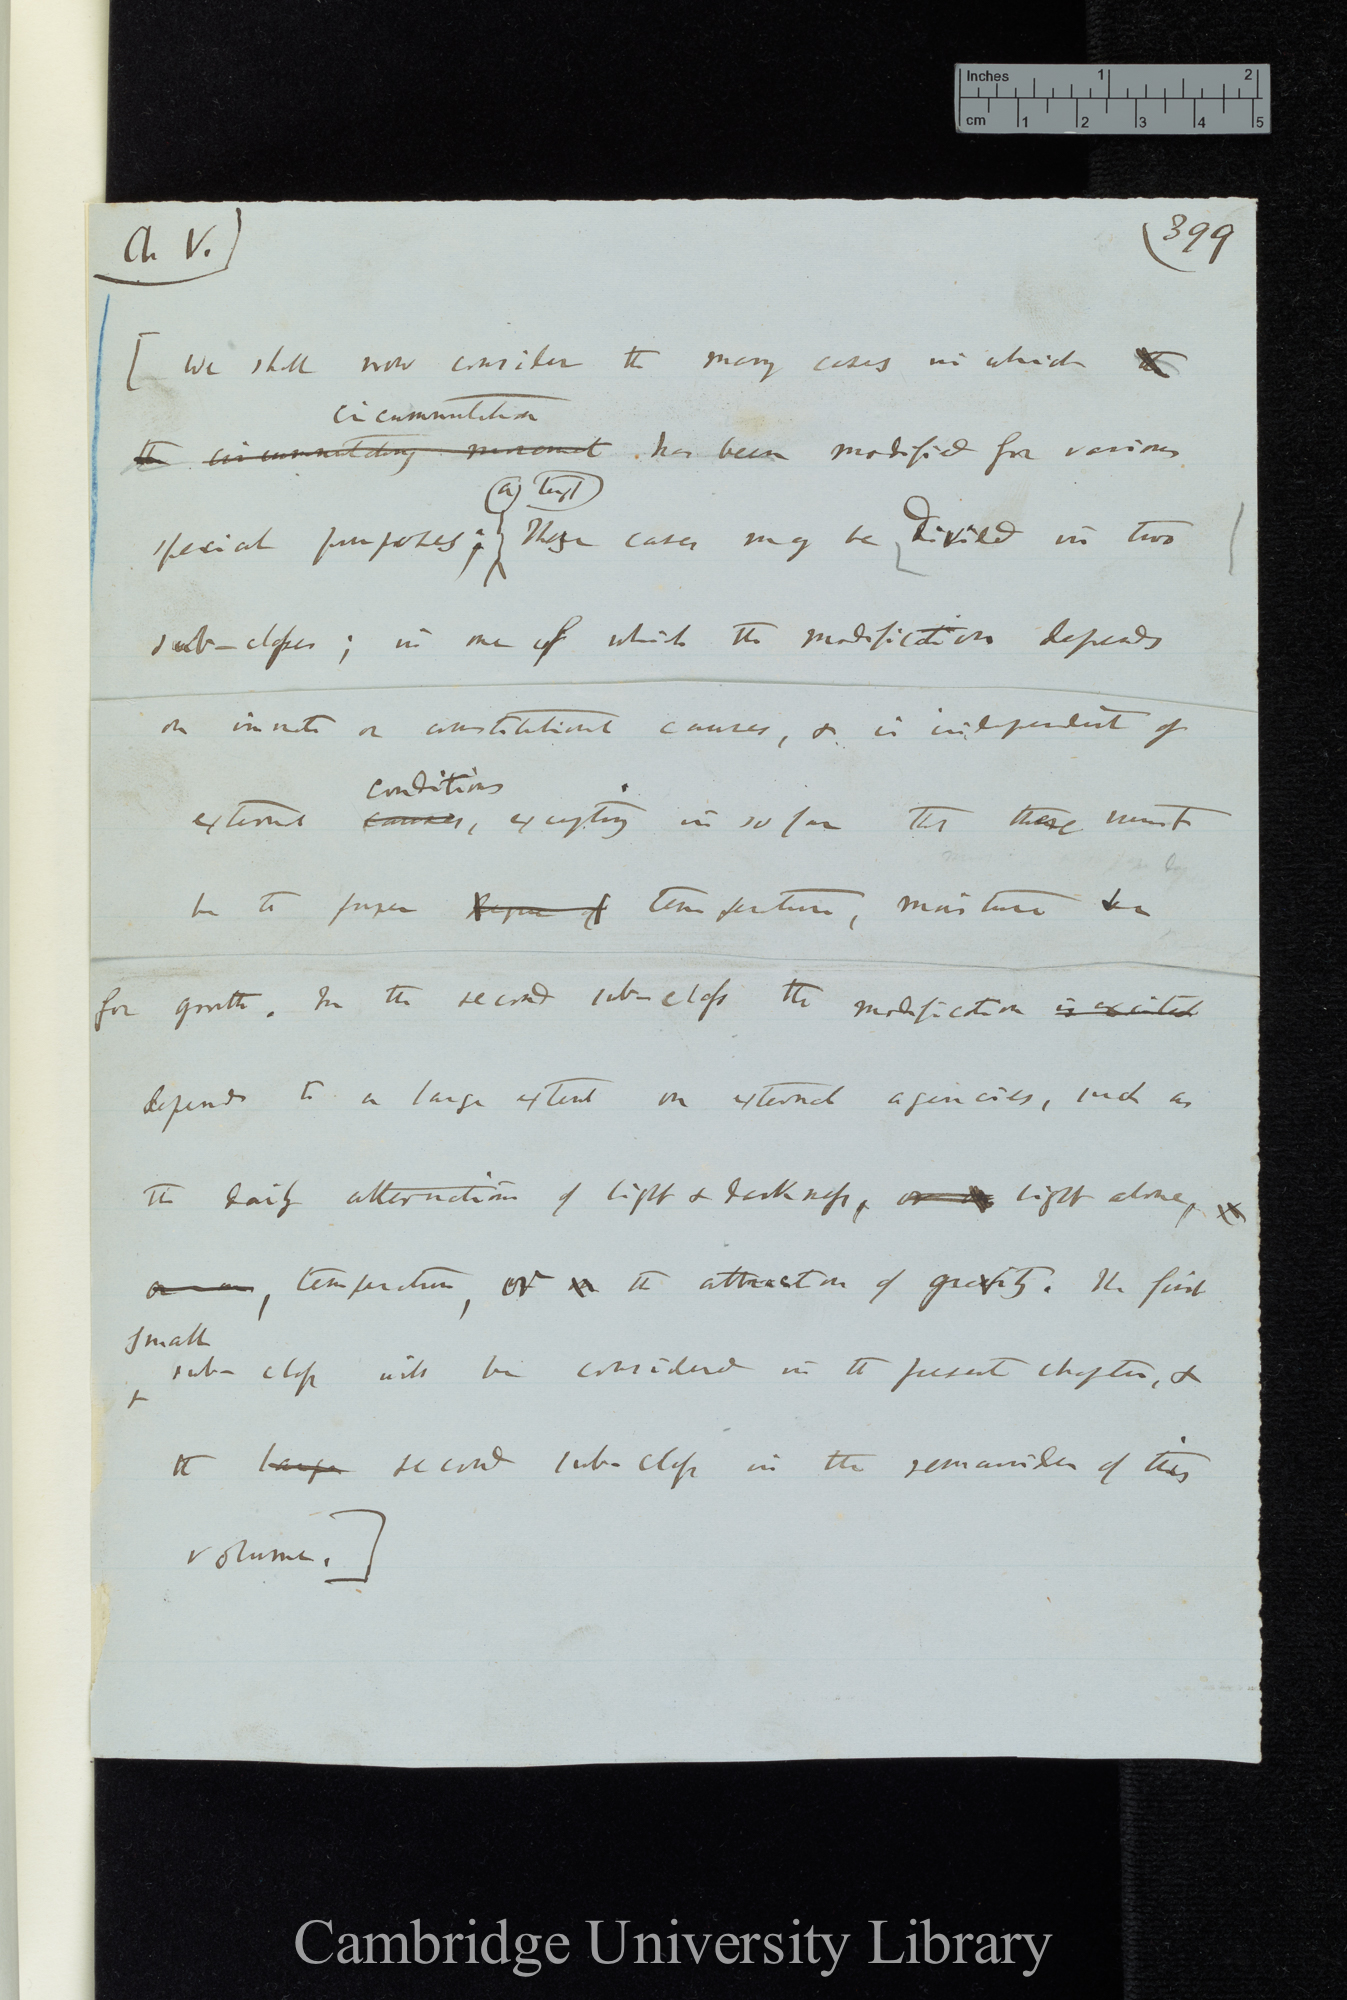 Inches 1 2
cm 1 2 3 4 5
Ch V.
(399
[ We shall now consider the many cases in which the
circumnutation
the circumnutating movement has been modified for various
(a) text
special purposes; These cases may be divided in two
sub-classes; in one of which the modification depends
on innate or constitutional causes, & is independent of
conditions
external causes, excepting in so far that these must
be the proper degree of temperature, moisture &c
for growth. In the second sub-class the modification is excited
depends to a large extent on external agencies, such as
the daily alternations of light & darkness, or light alone,
temperature, or the attraction of gravity. The first
small
sub-class will be considered in the present chapter, &
the larger second sub-class in the remainder of this
volume.]
Cambridge University Library